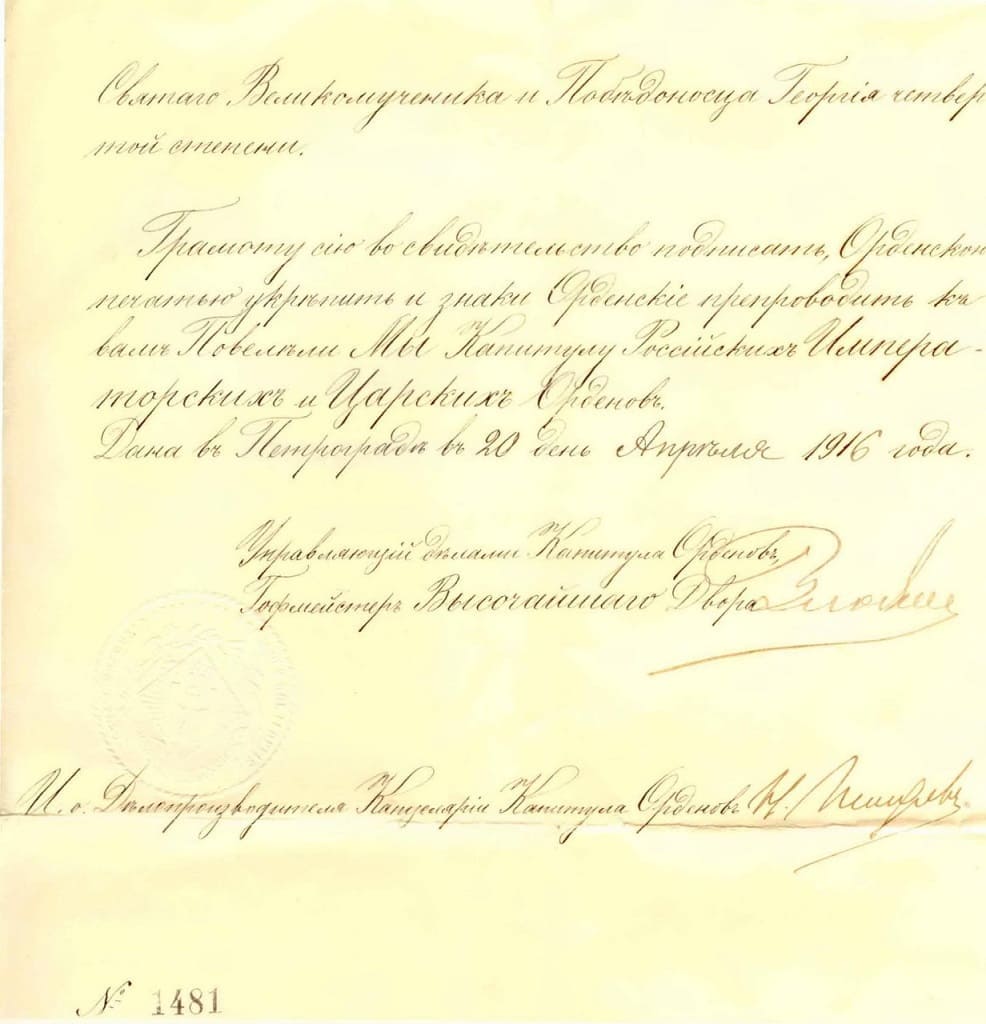 Святаго Великомученика и Побѣдоносца Георгія четвер
той степени.
Грамоту сію во свидѣтельство подписать, Орденскою
печатью укрѣпить и знаки Орденскіе препроводить къ
вамъ Повелѣли Мы Капитулу Россійскихъ Импера-
торскихъ и Царскихъ Орденовъ.
Дана въ Петроградѣ въ 20 день Апрѣля 1916 года.
Управляющій дѣлами Капитула Орденовъ,
Гофмейстеръ Высочайшаго Двора
И. о. Дѣлопроизводителя Канцеляріи Капитула Орденовъ Н.
№ 1481